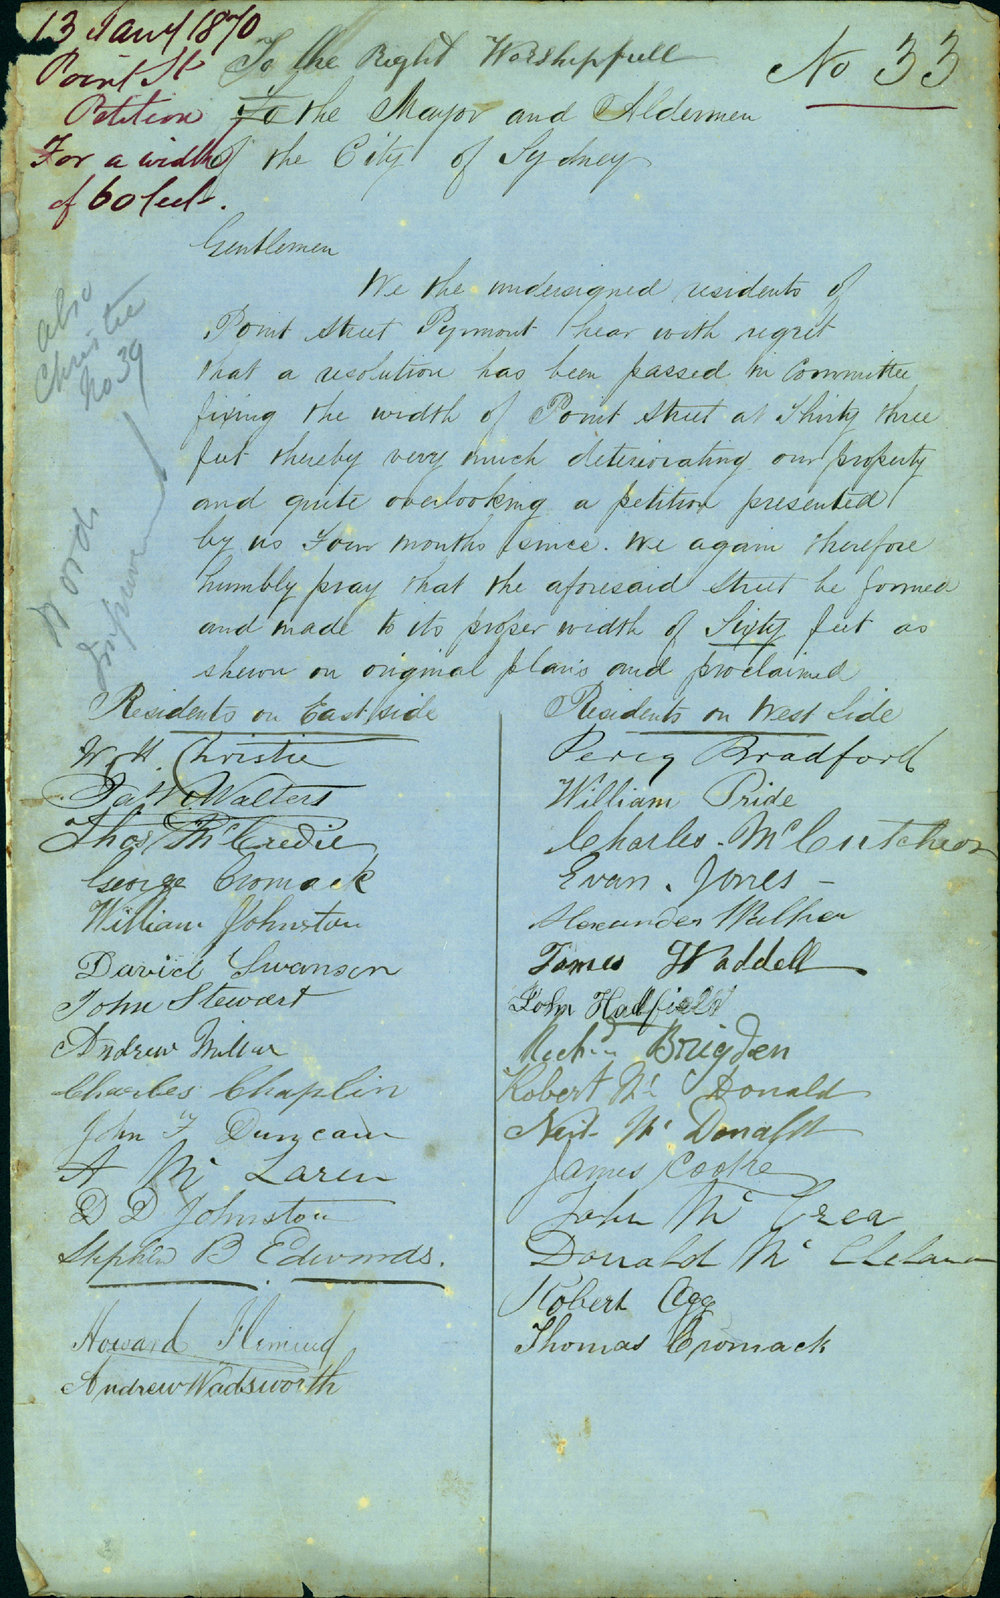 13 Jany 1870
Point St
Petition
For a width
of 60 feet.
No 33
To the Right Worshipfull
To the Mayor and Aldermen
of the City of Sydney
Gentlemen
We the undersigned residents of
Point Street Pyrmont hear with regret
that a resolution has been passed in Committee
fixing the width of Point Street at Thirty three
feet thereby very much deteriorating our property
and quite overlooking a petition presented
by us Four months since. We again therefore
humbly pray that the aforesaid Street be formed
and made to its proper width of Sixty feet as
shewn on original plans and proclaimed
also
Christie
No 39
Words
Residents on East side
Wm H. Christie
Jas W. Walters
Thos McCredie
George Cromack
William Johnston
David Swanson
John Stewart
Andrew Millar
Charles Chaplin
John F Duncan
A McLaren
D D Johnston
Stephen B Edwards.
Howard
Andrew Wadsworth
Residents on West Side
Percy Bradford
William Pride
Charles McCutcheon
Evan Jones
Alexander Walker
James Waddell
John Hadfield
Brigden
Robert McDonald
Neil McDonald
James Cooke
John McCrea
Donald McClelland
Robert Agg
Thomas Cromack